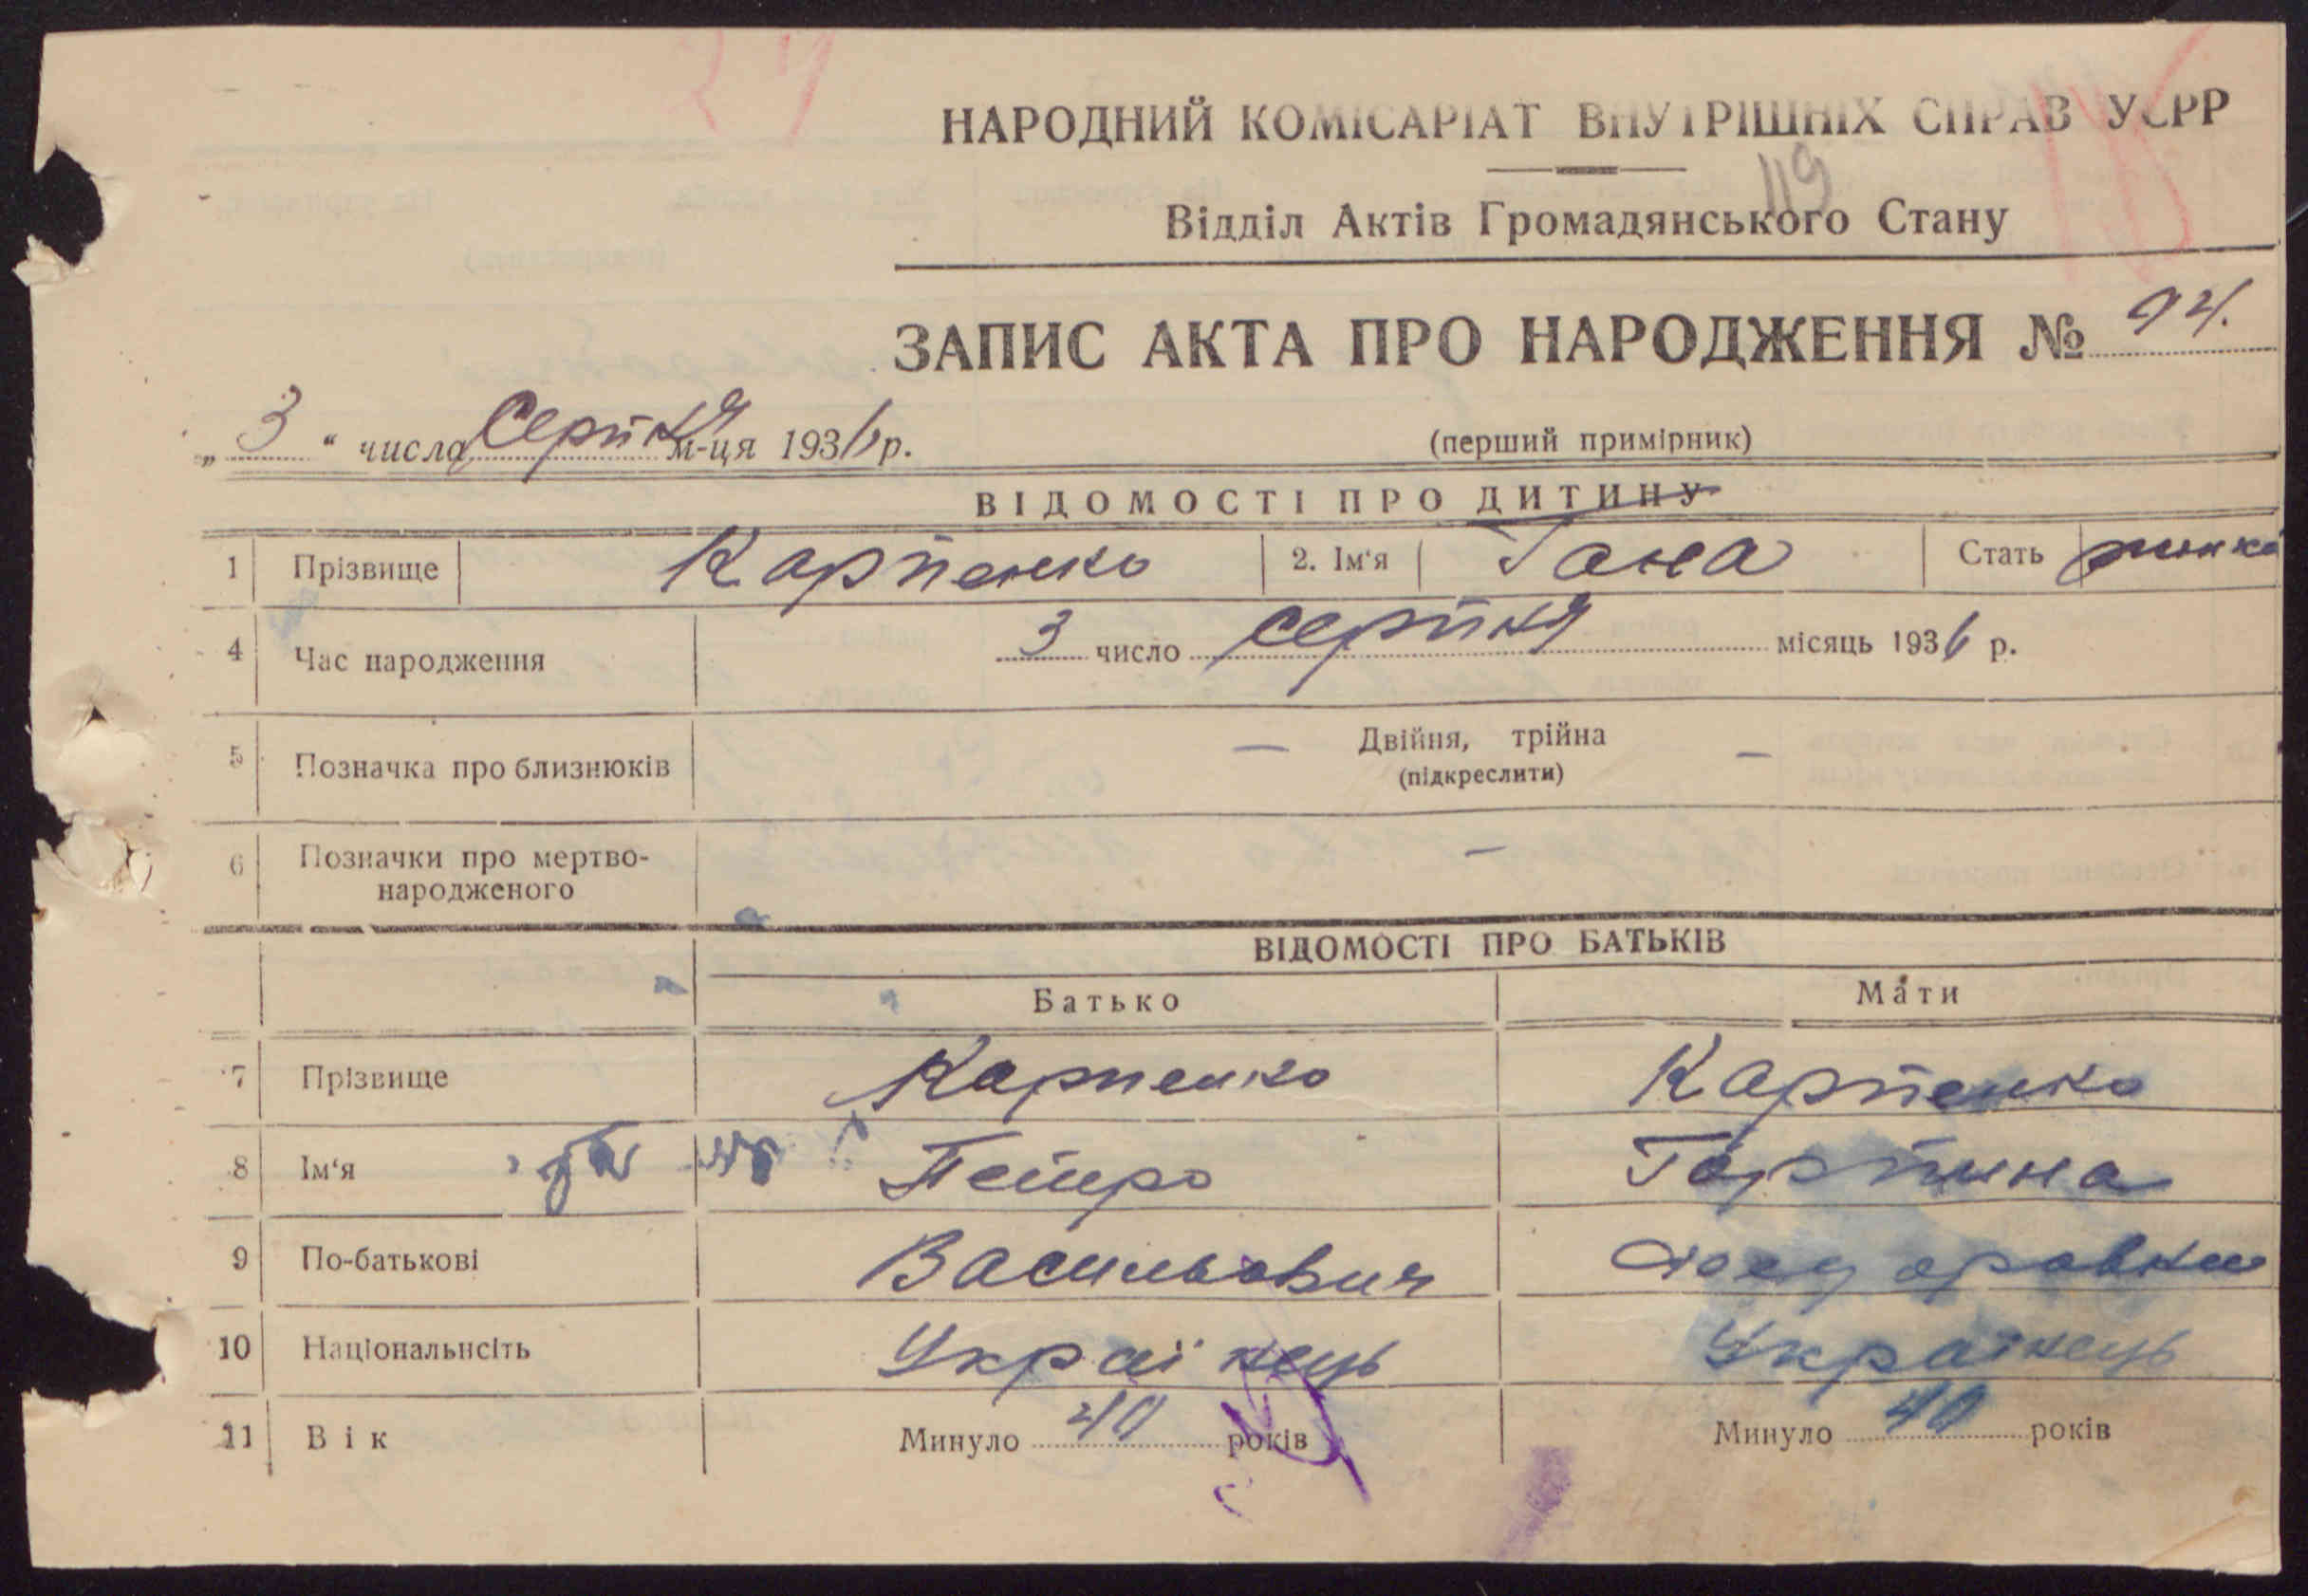 НАРОДНИЙ КОМІСАРІАТ ВНУТРІШНІХ СПРАВ УСРР
119
Відділ Актів Громадянського Стану
ЗАПИС АКТА ПРО НАРОДЖЕННЯ № 94.
„ 3 “ числа Серпня м-ця 1936 р.
(перший примірник)
ВІДОМОСТІ ПРО ДИТИНУ
1 Прізвище Карпенко 2. Ім‘я Гана Стать
4 Час народження 3 число серпня місяць 1936 р.
5 Позначка про близнюків — Двійня, трійна —
(підкреслити)
6 Позначки про мертво-
народженого —
ВІДОМОСТІ ПРО БАТЬКІВ
Батько Мати
7 Прізвище Карпенко Карпенко
8 Ім‘я Петро Горпина
9 По-батькові Васильович
10 Національнсіть Українець Українець
11 Вік Минуло 40 років Минуло 40 років